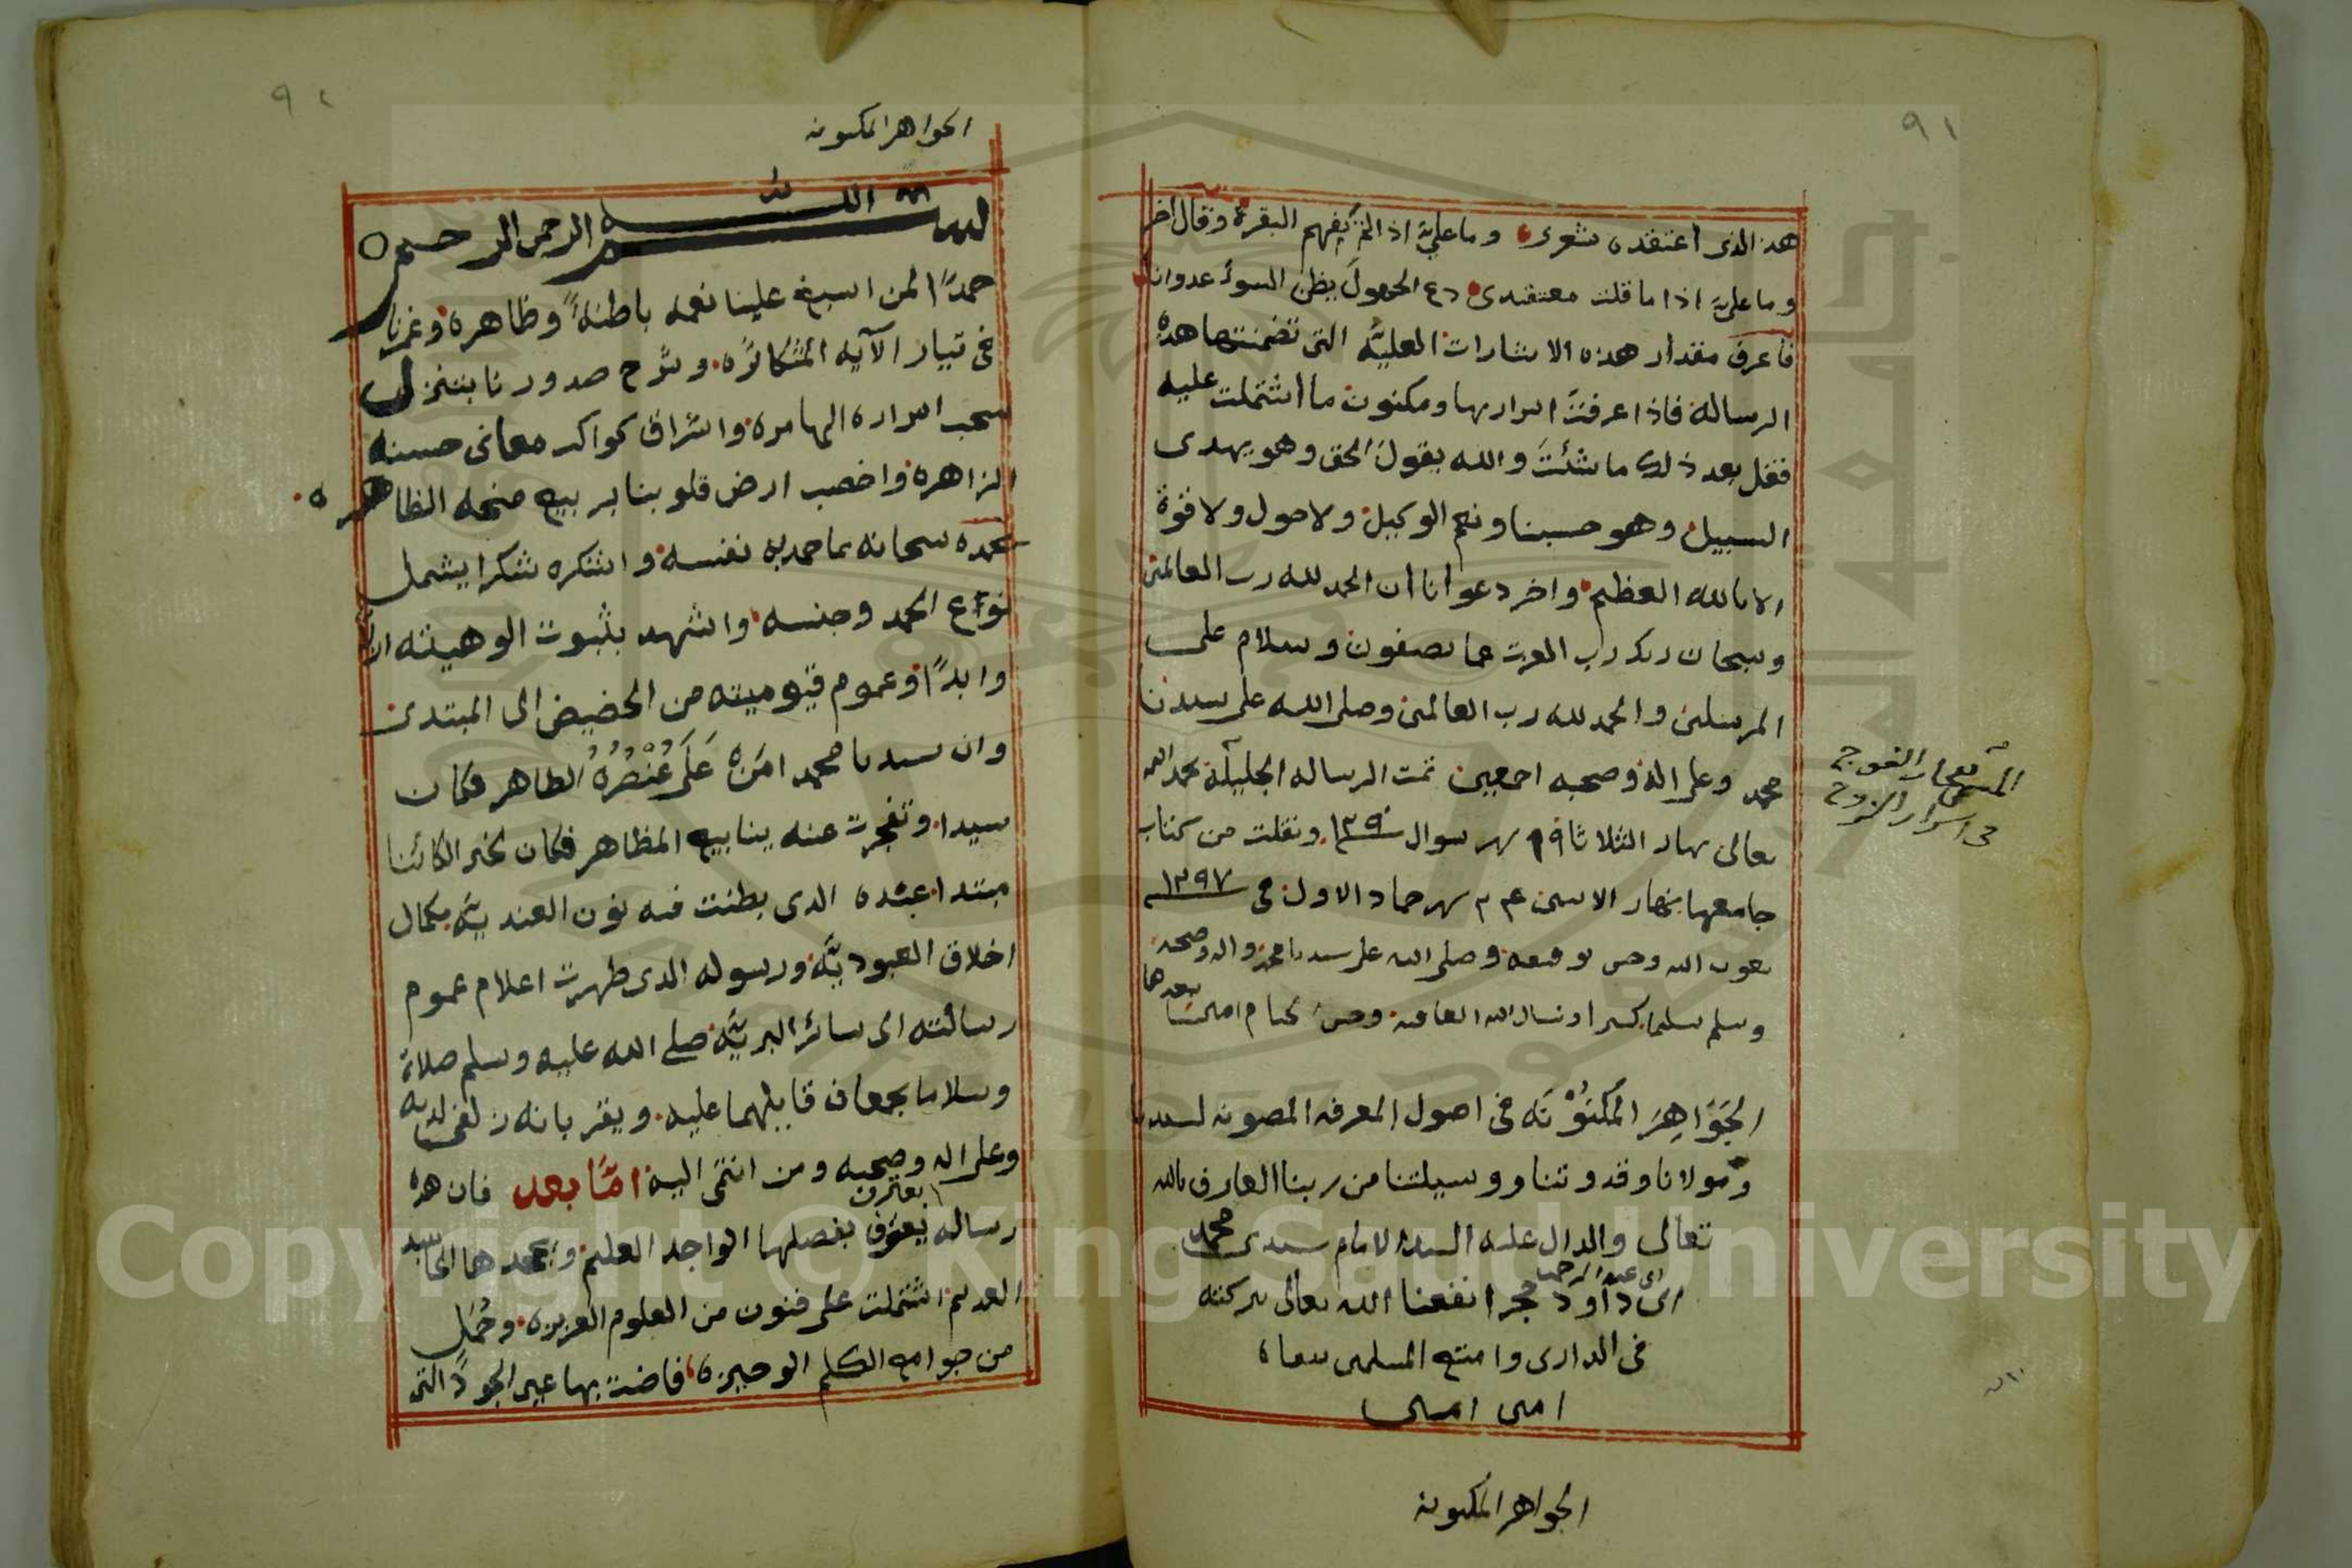 ٩١
هذا الذي اعتقده شعري وما عليّ اذا لم تفهم البقرة وقال اخر
وما عليّ اذا ما قلت معتقدي دع الجهول يظن السوء عدوانا
فاعرف مقدار هذه الاشارات العليّة التي تضمنتها هذه
الرسالة فاذا عرفتَ اسرارها ومكنون ما اشتملت عليه
فقل بعد ذلك ما شئتَ والله يقول الحق وهو يهدى
السبيل وهو حسبنا ونعم الوكيل ولا حول ولا قوة
الا بالله العظيم واخر دعوانا ان الحمد لله رب العالمين
وسبحان ربك رب العزت عما يصفون وسلام على
المرسلين والحمد لله رب العالمين وصلى الله على سيدنا
محمد وعلى اله وصحبه اجمعين تمت الرساله الجليلة بحمد الله
تعالى نهار الثلاثا ١٩ شهر شوال ١٣٩٠ ونقلت من كتاب
جامعها نهار الاثنين شهر جماد الاول في ١٢٩٧
بعون الله وحسن توفيقه وصلى الله على سيدنا محمد واله وصحبه
وسلم تسليما كثيرا ونسال الله العافيه وحسن ختام امين
بعدها
الجَوَاهِرَ المَكْنُوْنَه في اصول المعرفه المصونه لسيدنا
ومولانا وقدوتنا ووسيلتنا من ربنا العارف بالله
تعالى والدال عليه السيد الامام سيدى محمد
ابن عبد الرحمن
ابن داود حجر انفعنا الله تعالى ببركته
في الدارين وامتع المسلمين
امين امين
الجواهر المكنونه
في اسرار
٩٢
الجواهر المكنونه
بسم الله الرحمن الرحيم
حمدًا لمن اسبغ علينا نعمه باطنةً وظاهره وغمرنا
في تيار الآيه المتكاثره وشرح صدورنا بتنزل
سحب اسراره الهامره واشراق كواكب معاني حسنه
الزاهره واخصب ارض قلوبنا بربيع منحه الظاهره
نحمده سبحانه بما حمد به نفسه واشكره شكرا يشمل
نواع الحمد وجنسه واشهد بثبوت الوهيته ازلا
وابدًا وعموم قيوميته من الحضيض الى المبتدى
وان سيدنا محمد امَرَهُ عَلَى عُنْصُرُهُ الطاهر فكان
سيدا وتفجرت عنه ينابيع المظاهر فكان لخبر الكائنا
مبتدا عبده الذي بطنت فيه نون العنديّه بكمال
اخلاق العبوديّة ورسوله الذي ظهرت اعلام عموم
رسالته الى سائر البريّة صلى الله عليه وسلم صلاة
وسلاما يجمعان قايلهما عليه ويقربانه زلفى لديه
وعلى اله وصحبه ومن انتمى اليه امّا بعد فان هذه
يعترف
رساله يَعترف بفضلها الواجد العليم ويجحدها الحاسد
العديم اشتملت على فنون من العلوم العزيزه وجُمَل
من جوامع الكلم الوجيزة فاضت بها عين الجودُ التى
Copyright © King Saud University